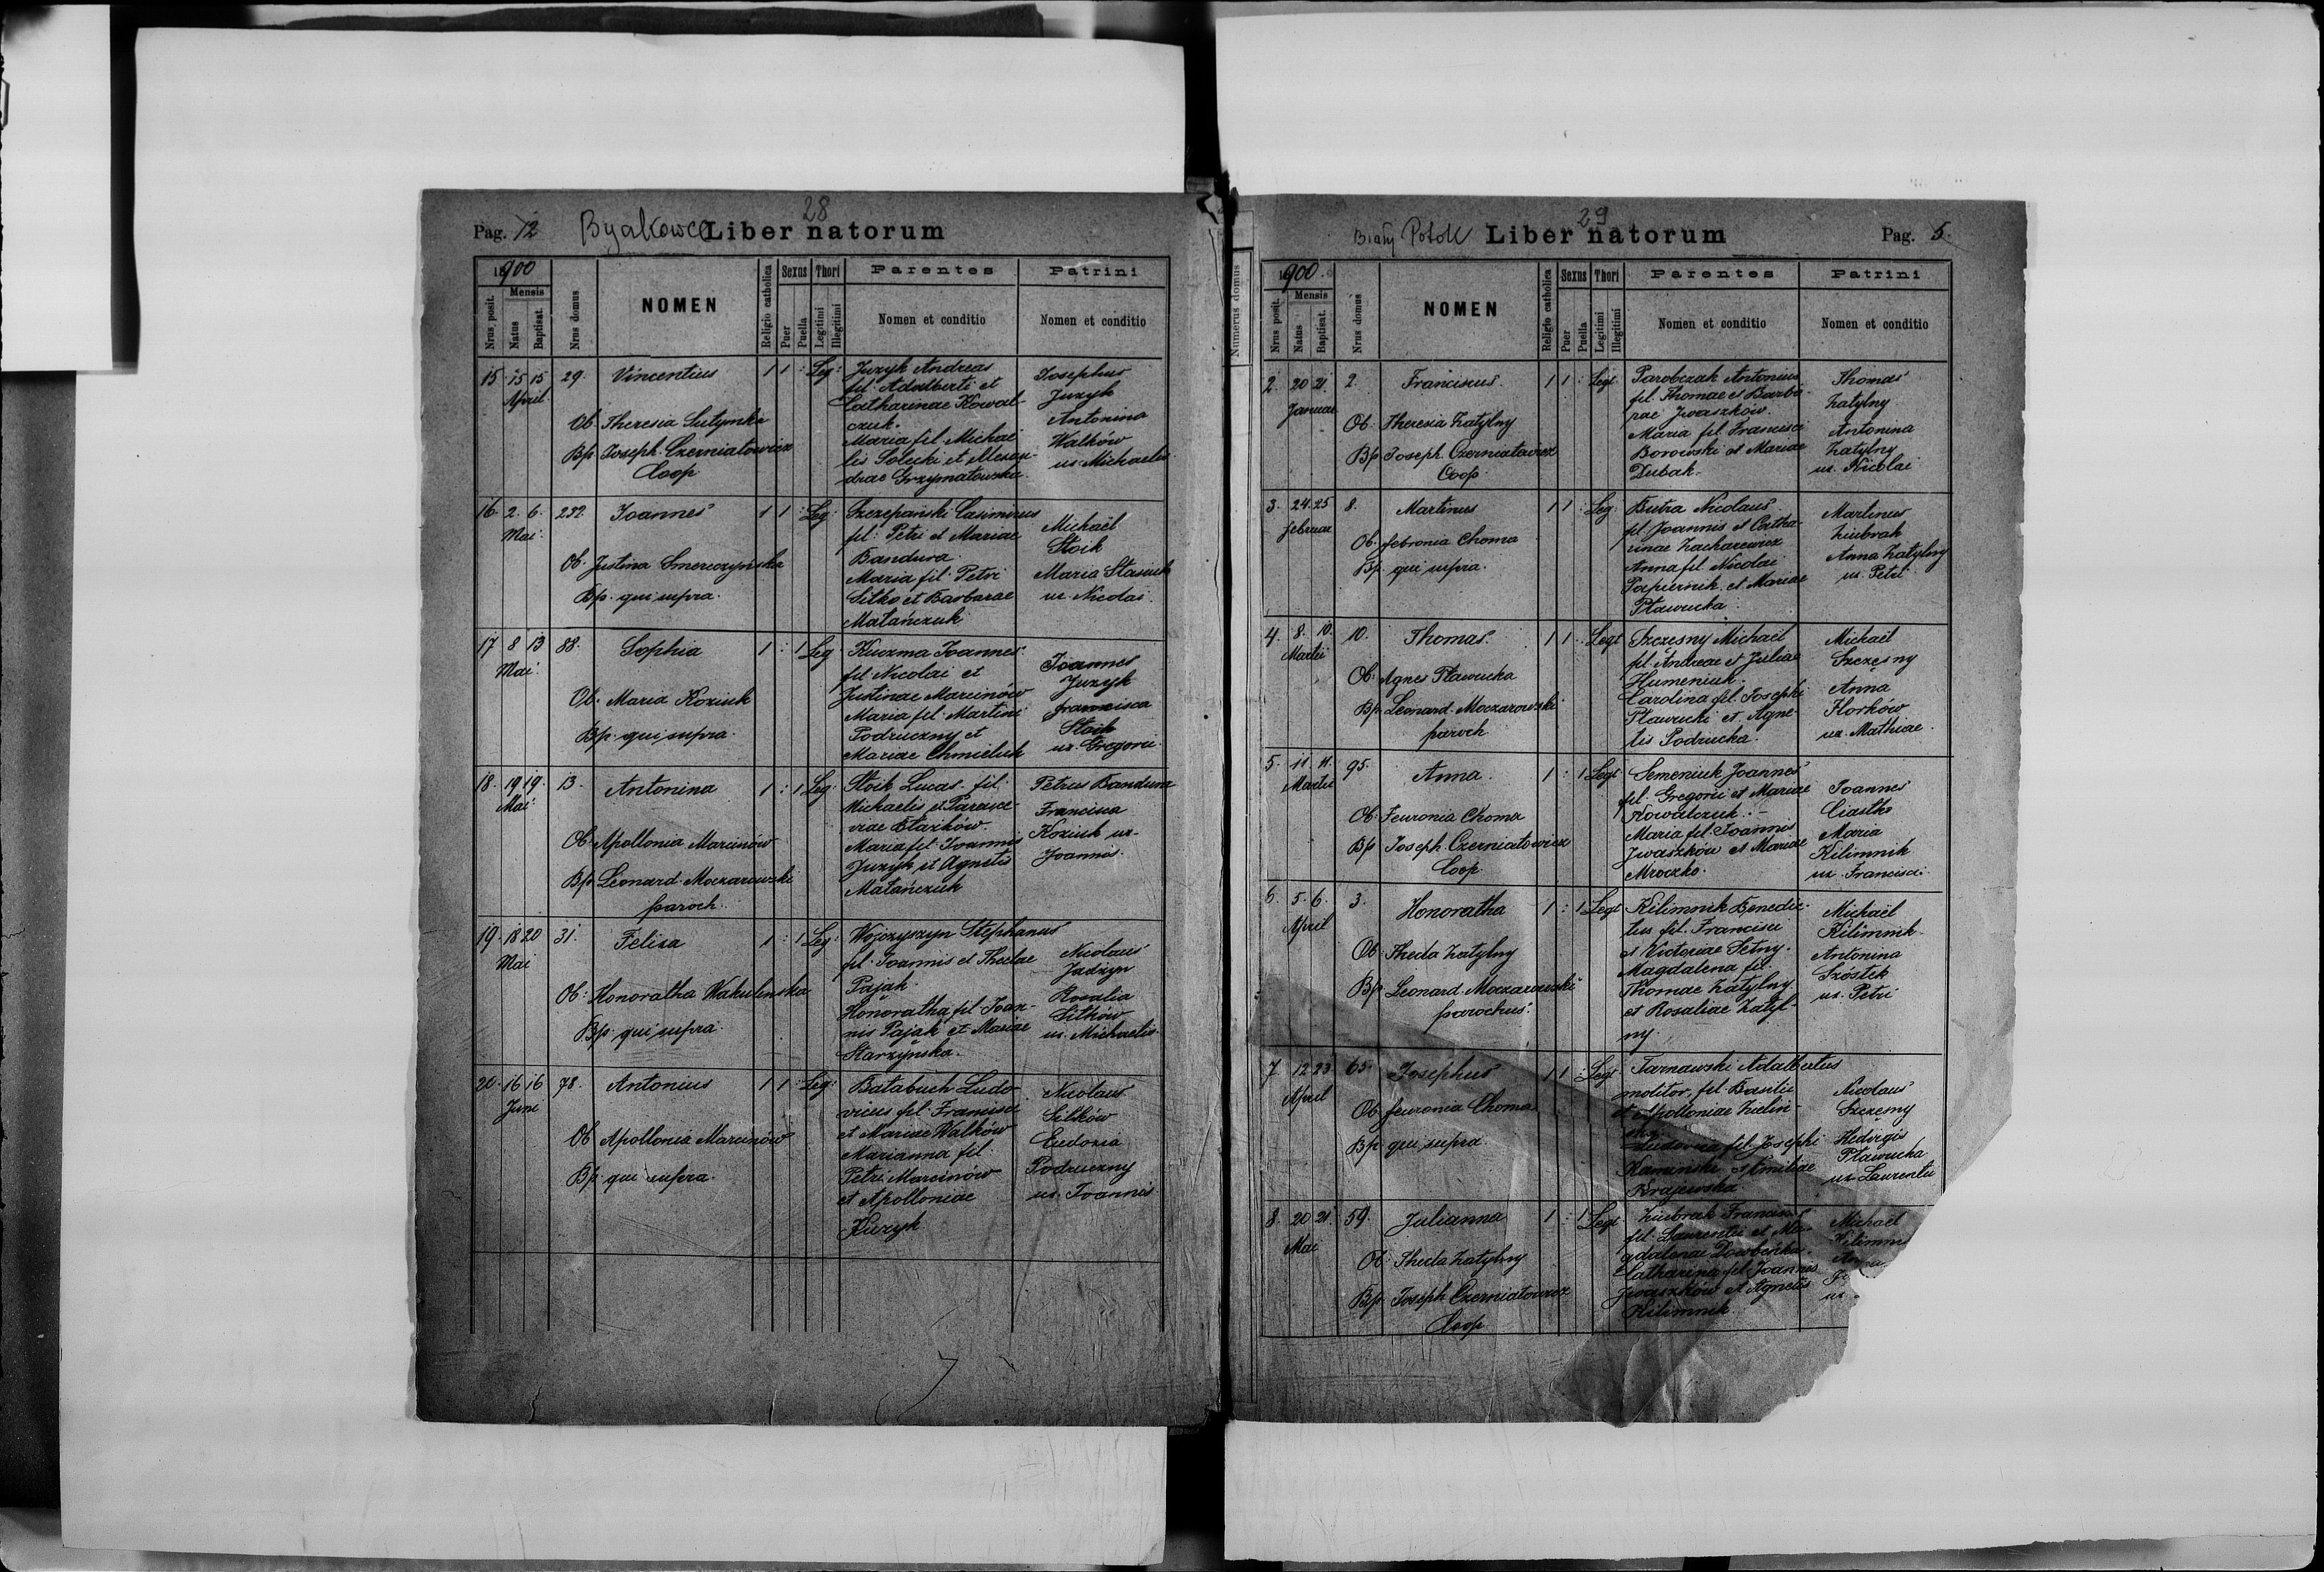 28
Pag. 12 Byakowce Liber natorum
1900
Nrus posit.
Mensis
Natus
Baptisat.
Nrus domus
NOMEN
Religio catholica
Sexus
Puer
Puella
Thori
Legitimi
Illegitimi
Parentes
Nomen et conditio
Patrini
Nomen et conditio
15 15 15 29. Vincentius 1 1 : Leg:
April
Ob. Theresia Sutymka
Bp. Joseph Czerniatowicz
Coop
Juzyk Andreas
fil. Adalberti et
Catharinae Kowal-
czuk.
Maria fil. Michae-
lis Solecki et Alexan-
drae Grzymatowska
Josephus
Juzyk
Antonina
Walków
ux. Michaelis
16. 2. 6. 232. Joannes 1 1 : Leg:
Mai
Ob. Justina Smerczyńska
Bp. qui supra.
Szczepański Casimirus
fil: Petri et Mariae
Bandura.
Maria fil. Petri
Sitko et Barbarae
Matańczuk
Michaël
Stoik
Maria Stasiuk
ux. Nicolai
17 8 13 88. Sophia 1 : 1 Leg
Mai
Ob. Maria Koziuk
Bp. qui supra.
Kuzma Joannes
fil Nicolai et
Justinae Marcinów
Maria fil. Martini
Podruczny et
Mariae Chmieluk
Joannes
Juzyk
Francisca
Stoik
ux. Gregorii
18. 19 19. 13. Antonina 1 : 1 Leg:
Mai
Ob Apollonia Marcinów
Bp. Leonard Moczarowski
paroch.
Stoik Lucas fil.
Michaelis et Parasce-
viae Błazków.
Maria fil. Joannis
Juzyk et Agnetis
Matańczuk
Petrus Bandura
Francisca
Koziuk ux.
Joannis.
19. 18 20 31. Felixa 1 : 1 Leg:
Mai
Ob: Honoratha Wakulinska
Bp. qui supra.
Wojczyszyn Stephanus
fil. Joannis et Theclae
Pająk.
Honoratha fil Joan-
nis Pająk et Mariae
Starzyńska.
Nicolaus
Jadzyn
Rosalia
Sitków
ux. Michaelis
20. 16 16 78. Antonius 1 1 : Leg:
Juni
Ob Apollonia Marcinów
Bp. qui supra.
Batabuch Ludo-
vicus fil. Francisci
et Mariae Walków
Marianna fil.
Petri Marcinów
et Apolloniae
Juzyk
Nicolaus
Sitków
Eudoxia
Podruczny
ux. Joannis
29
Biały Potok Liber natorum Pag. 5.
Numerus domus
1900.
Nrus posit.
Mensis
Natus
Baptisat.
Nrus domus
NOMEN
Religio catholica
Sexus
Puer
Puella
Thori
Legitimi
Illegitimi
Parentes
Nomen et conditio
Patrini
Nomen et conditio
2. 20 21. 2. Franciscus 1 1 : Legt
Januar
Ob. Theresia Zatylny
Bp Joseph Czerniatowicz
Coop.
Parobczak Antonius
fil. Thomae et Barba-
rae Jwaszków.
Maria fil Francisci
Borowski et Mariae
Dubak.
Thomas
Zatylny
Antonina
Zatylny
ux. Nicolai
3. 24. 25 8. Martinus 1 1 : Leg:
Februar
Ob. Febronia Choma
Bp. qui supra.
Butra Nicolaus
fil Joannis et Catha-
rinae Zacharewicz
Anna fil Nicolai
Papiernik et Mariae
Pławucka.
Martinus
Ziubrak
Anna Zatylny
ux. Petri
4. 8. 10. 10. Thomas 1 1 . Legt
Martii
Ob. Agnes Pławucka
Bp. Leonard Moczarowski
paroch.
Szczęsny Michaël
fil. Andreae et Juliae
Humeniuk.
Carolina fil. Josephi
Pławucki et Agne-
tis Podrucka.
Michaël
Szczęsny
Anna
Horków
ux. Mathiae.
5. 11. 11. 95. Anna. 1 : 1 Legt
Martii
Ob. Feuronia Choma
Bp Joseph Czerniatowicz
Coop.
Semeniuk Joannes
fil. Gregorii et Mariae
Kowalczuk.
Maria fil. Joannis
Jwaszków et Mariae
Mroczko.
Joannes
Ciastko
Maria
Kilimnik
ux. Francisci.
6. 5. 6. 3. Honoratha 1 : 1 Legt
April
Ob. Thecla Zatylny
Bp Leonard Moczarowski
parochus.
Kilimnik Benedic-
tus fil. Francisci
et Victoriae Setny.
Magdalena fil
Thomae Zatylny
et Rosaliae Zatyl-
ny.
Michaël
Kilimnik
Antonina
Szostek
ux. Petri
7. 12 23 65. Josephus 1 1 : Legt
April
Ob. Feuronia Choma
Bp. qui supra.
Tarnawski Adalbertus
molitor, fil. Basilii
et Apolloniae Zielin-
ska
Ludovica fil. Josephi
Kaminski et Emiliae
Krajewska
Nicolaus
Szczęsny
Hedvigis
Pławucka
ux. Laurentii
8. 20 21. 59. Julianna 1 : 1 Legt
Mai
Ob. Thecla Zatylny
Bp. Joseph Czerniatowicz
Coop
Ziubrak Francisc
fil. Laurentii et Ma-
gdalenae Dowbenka.
Catharina fil Joannis
Jwaszków et Agnetis
Kilimnik
Michaël
Kilimni
Anna
ux.